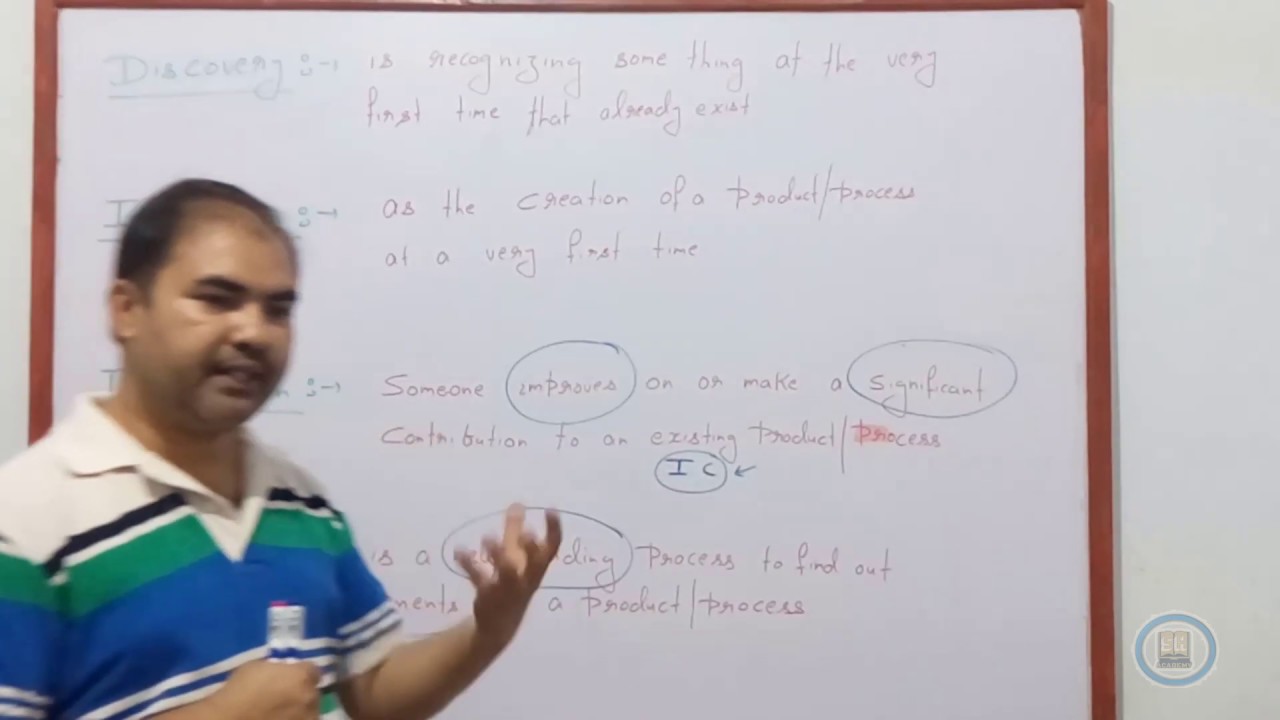 Discovery :-→ is recognizing some thing at the very
first time that already exist
:-→ as the creation of a product/process
at a very first time
:-→ Someone improves on or make a significant
Contribution to an existing product/process
IC ←
is a process to find out
a product/process
ACADEMY